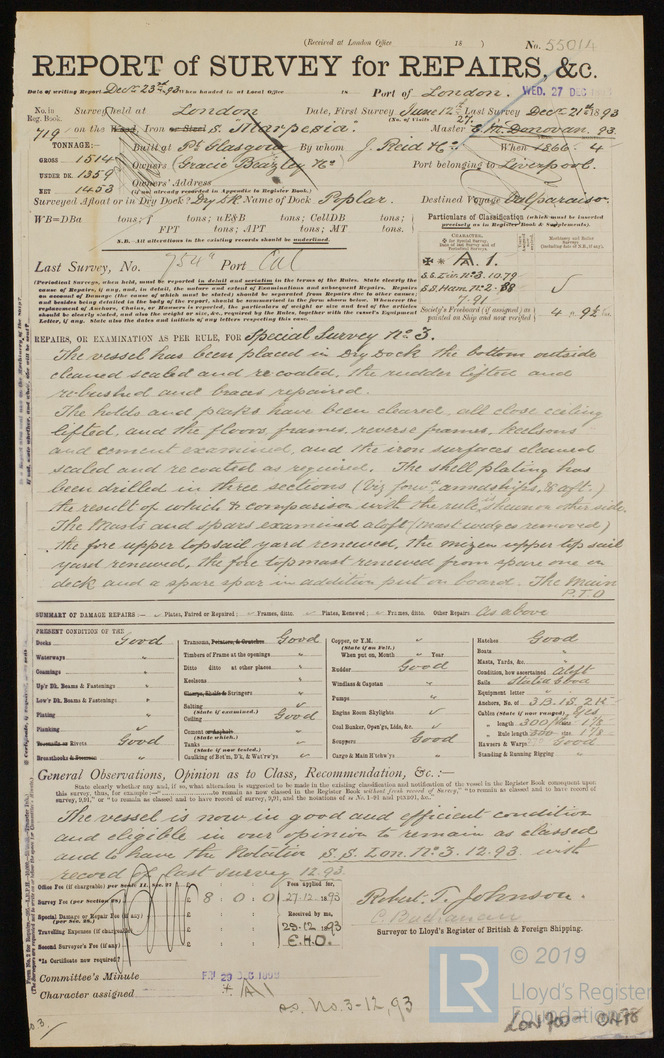 (Received at London Office 18 ) No. 55014
REPORT OF SURVEY for REPAIRS, &c.
Date of writing Report Decr. 23rd. 93 When handed in at Local Office 18 Port of London. WED. 27 DEC
No. in Reg. Book. Survey held at London Date, First Survey June 12th Last Survey Decr. 21st 1893
(No. of Visits 27.)
719 on the Wood, Iron or Steel S. Marpesia. Master Donovan. 93.
TONNAGE:— Built at Pt. Glasgow By whom J. Reid & Co. When 1866. 4
GROSS 1514 Owners (Gracie Beazley & Co) Port belonging to Liverpool.
UNDER DK. 1359 Owners' Address
NET 1453 (if not already recorded in Appendix to Register Book.)
Surveyed Afloat or in Dry Dock? Dry Dk Name of Dock Poplar. Destined Voyage Valparaiso.
WB=DBa tons; f tons; uE&B tons; CellDB tons;
FPT tons; APT tons; MT tons.
N.B. All alterations in the existing records should be underlined.
Particulars of Classification (which must be inserted precisely as in Register Book & Supplements).
Last Survey, No. 954 Port Cal
✠ * A. 1.
S.S. Lon. No. 3. 10.79
S.S. Ham. No. 2. 88
7.91
Society's Freeboard (if assigned) as painted on Ship and now verified 4 . 9½
REPAIRS, OR EXAMINATION AS PER RULE, FOR Special Survey No. 3.
The vessel has been placed in Dry Dock the bottom outside
cleaned scaled and re-coated, the rudder lifted and
re-bushed and braces repaired.
The holds and peaks have been cleared, all close ceiling
lifted, and the floors, frames, reverse frames, keelsons
and cement examined, and the iron surfaces cleaned
scaled and recoated as required. The shell plating has
been drilled in three sections (Viz. forwd, amidships, & aft.)
the result of which & comparison with the rule, is shewn on other side.
The Masts and spars examined aloft (mast wedges removed)
the fore upper topsail yard renewed, the mizen upper topsail
yard renewed, the fore topmast renewed from spare one on
deck and a spare spar in addition put on board. The Main
P.T.O
SUMMARY OF DAMAGE REPAIRS:— Plates, Faired or Repaired; Frames, ditto. Plates, Renewed; Frames, ditto. Other Repairs As above
PRESENT CONDITION OF THE
Decks Good
Waterways "
Coamings "
Up'r Dk. Beams & Fastenings "
Low'r Dk. Beams & Fastenings "
Plating "
Planking
Treenails or Rivets Good
Breasthooks & Sternson "
Transoms, Pointers, & Crutches Good
Timbers of Frame at the openings
Ditto ditto at other places
Keelsons
Clamps, Shelfs & Stringers
Salting (State if examined.)
Ceiling Good
Cement or Asphalt (State which.)
Tanks (State if now tested.)
Caulking of Bot'm, D'k, & Wat'w'ys
Copper, or Y.M. (State if on Felt.)
When put on, Month Year
Rudder Good
Windlass & Capstan
Pumps
Engine Room Skylights
Coal Bunker, Open'gs, Lids, &c.
Scuppers Good
Cargo & Main H'tchw'ys
Hatches Good
Boats
Masts, Yards, &c.
Condition, how ascertained Aloft
Sails Stated Good
Equipment letter
Anchors, No. of 3 B. 1 S. 2 K
Cables (State if now ranged) Yes
" length 300 fms 1⅞
" Rule length 300 fms 1⅞
Hawsers & Warps Good
Standing & Running Rigging "
General Observations, Opinion as to Class, Recommendation, &c. :—
The vessel is now in good and efficient condition
and eligible in our opinion to remain as classed
and to have the Notation S.S. Lon. No. 3. 12.93 with
record of last survey 12.93.
Office Fee (if chargeable) per Scale II., Sec. 27 £ : :
Survey Fee (per Section 28) £ 8 . 0 . 0
Special Damage or Repair Fee (if any) (per Sec. 28.) £
Travelling Expenses (if chargeable) £
Second Surveyor's Fee (if any) £
*Is Certificate now required?
Fees applied for, 27.12.1893
Received by me, 29.12.1893
E.H.O.
Robert T. Johnson.
C. Buchanan
Surveyor to Lloyd's Register of British & Foreign Shipping.
Committee's Minute FRI 29 DEC 1893
Character assigned * A1
s.s. No. 3-12,93
LR
© 2019
Lloyd's Register
Foundation
LON 700- 0478